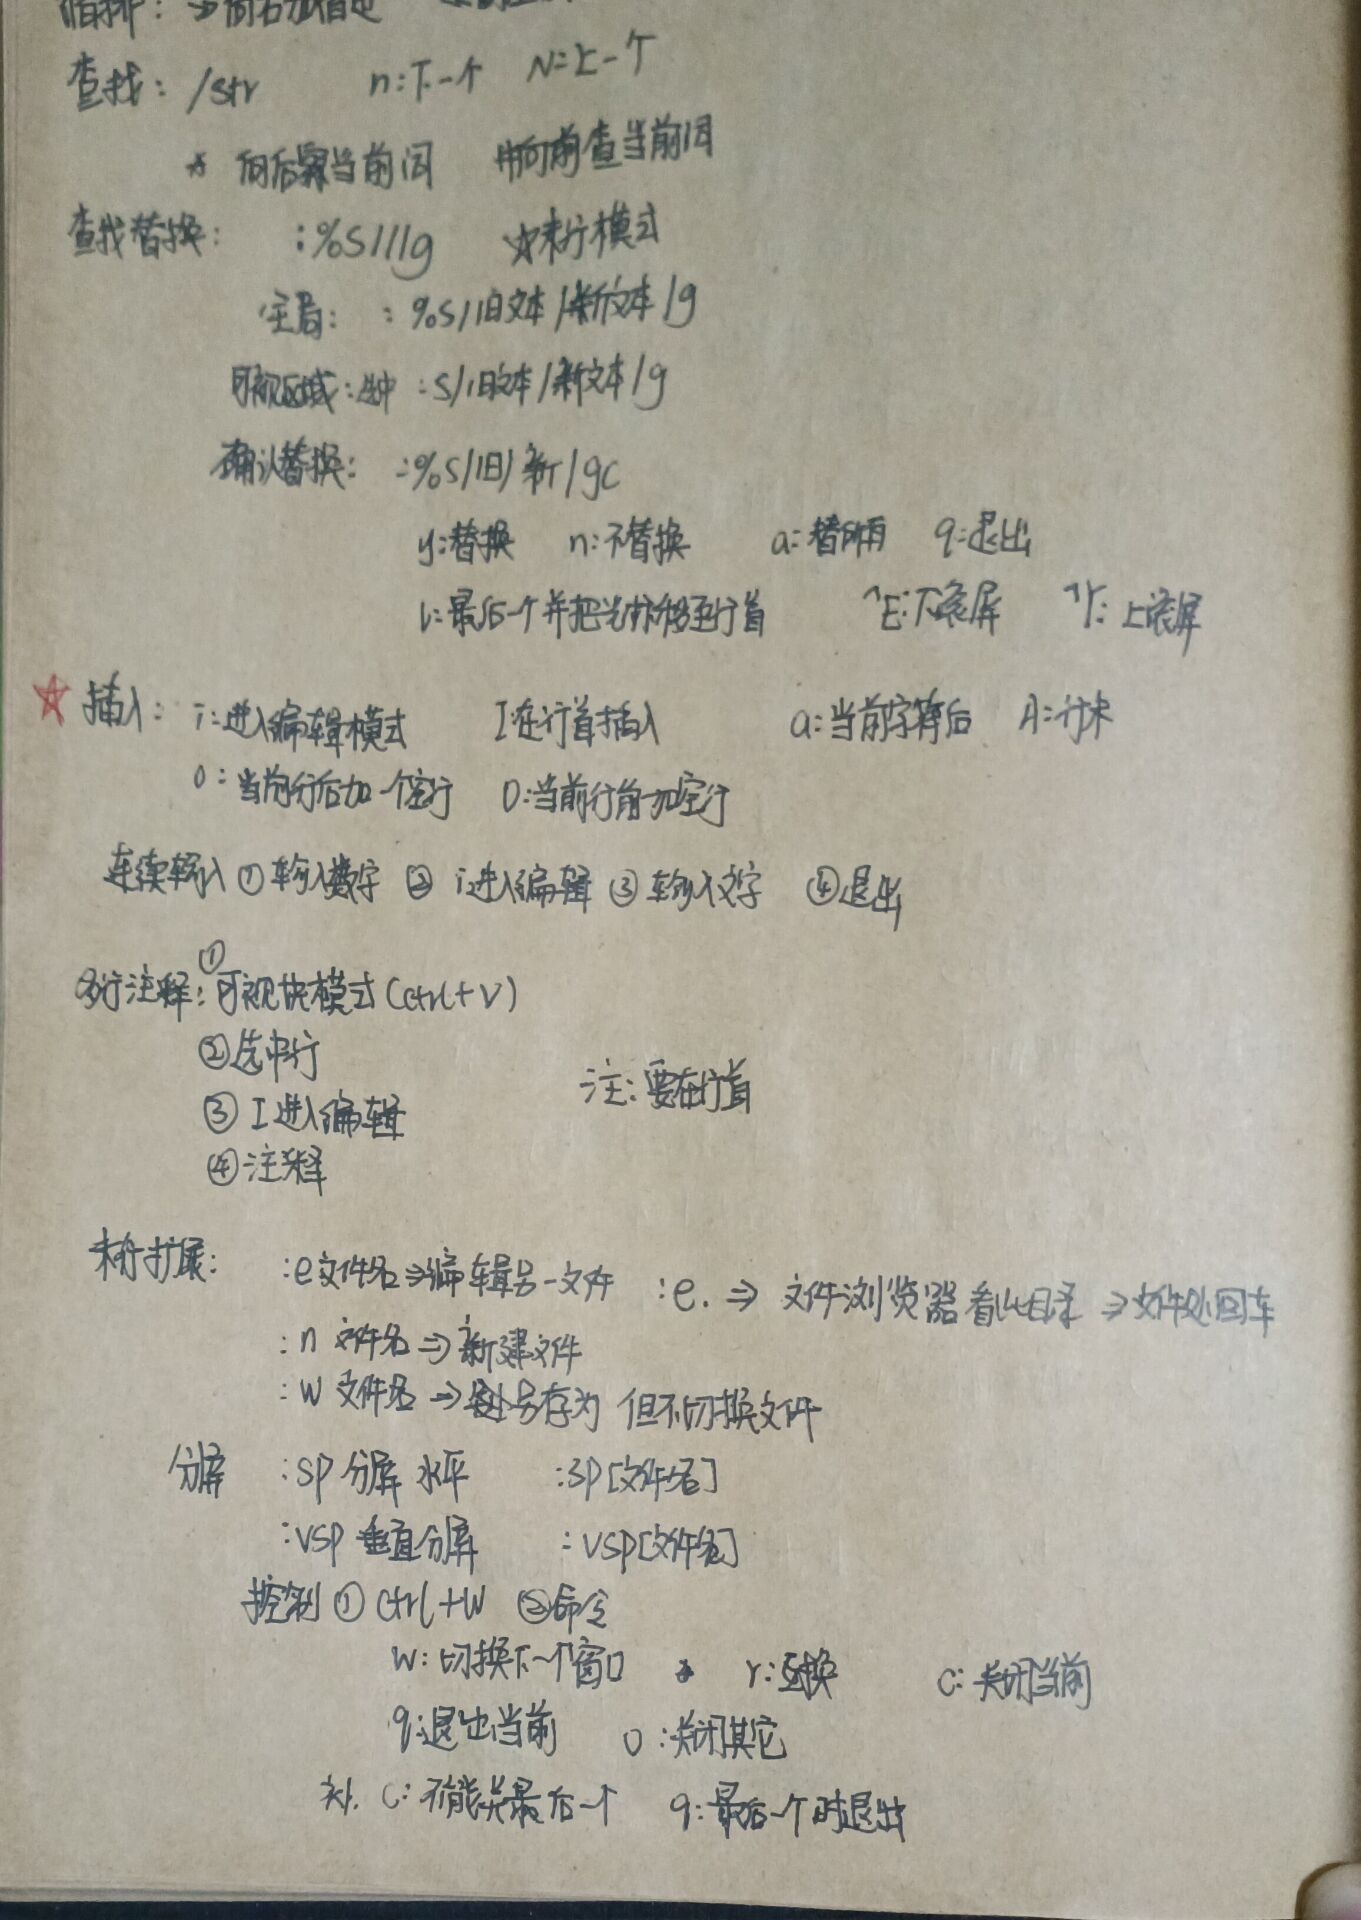 缩排: → 向右加缩进
查找: /str n:下一个 N:上一个
* 向后察当前词 #向前查当前词
查找替换: :%s///g ☆末行模式
全局: :%s/旧文本/新文本/g
可视区域:选中 :s/旧文本/新文本/g
确认替换: :%s/旧/新/gc
y:替换 n:不替换 a:替所有 q:退出
l:最后一个并把光标移至行首 ^E:下滚屏 ^Y:上滚屏
☆ 插入: i:进入编辑模式 I:在行首插入 a:当前字符后 A:行末
o:当前行后加一个空行 O:当前行前加空行
连续输入 ①输入数字 ② i进入编辑 ③输入文字 ④退出
多行注释:①可视块模式(ctrl+v)
②选中行
③ I进入编辑 注:要在行首
④注释
末行扩展: :e文件名⇒编辑另一文件 :e. ⇒ 文件浏览器看此目录 ⇒文件处回车
:n 文件名⇒新建文件
:w 文件名⇒另存为 但不切换文件
分屏 :sp 分屏 水平 :sp[文件名]
:vsp 垂直分屏 :vsp[文件名]
控制 ① ctrl+w ②命令
w:切换下一个窗口 r:互换 c:关闭当前
q:退出当前 o:关闭其它
补. c:不能关最后一个 q:最后一个时退出